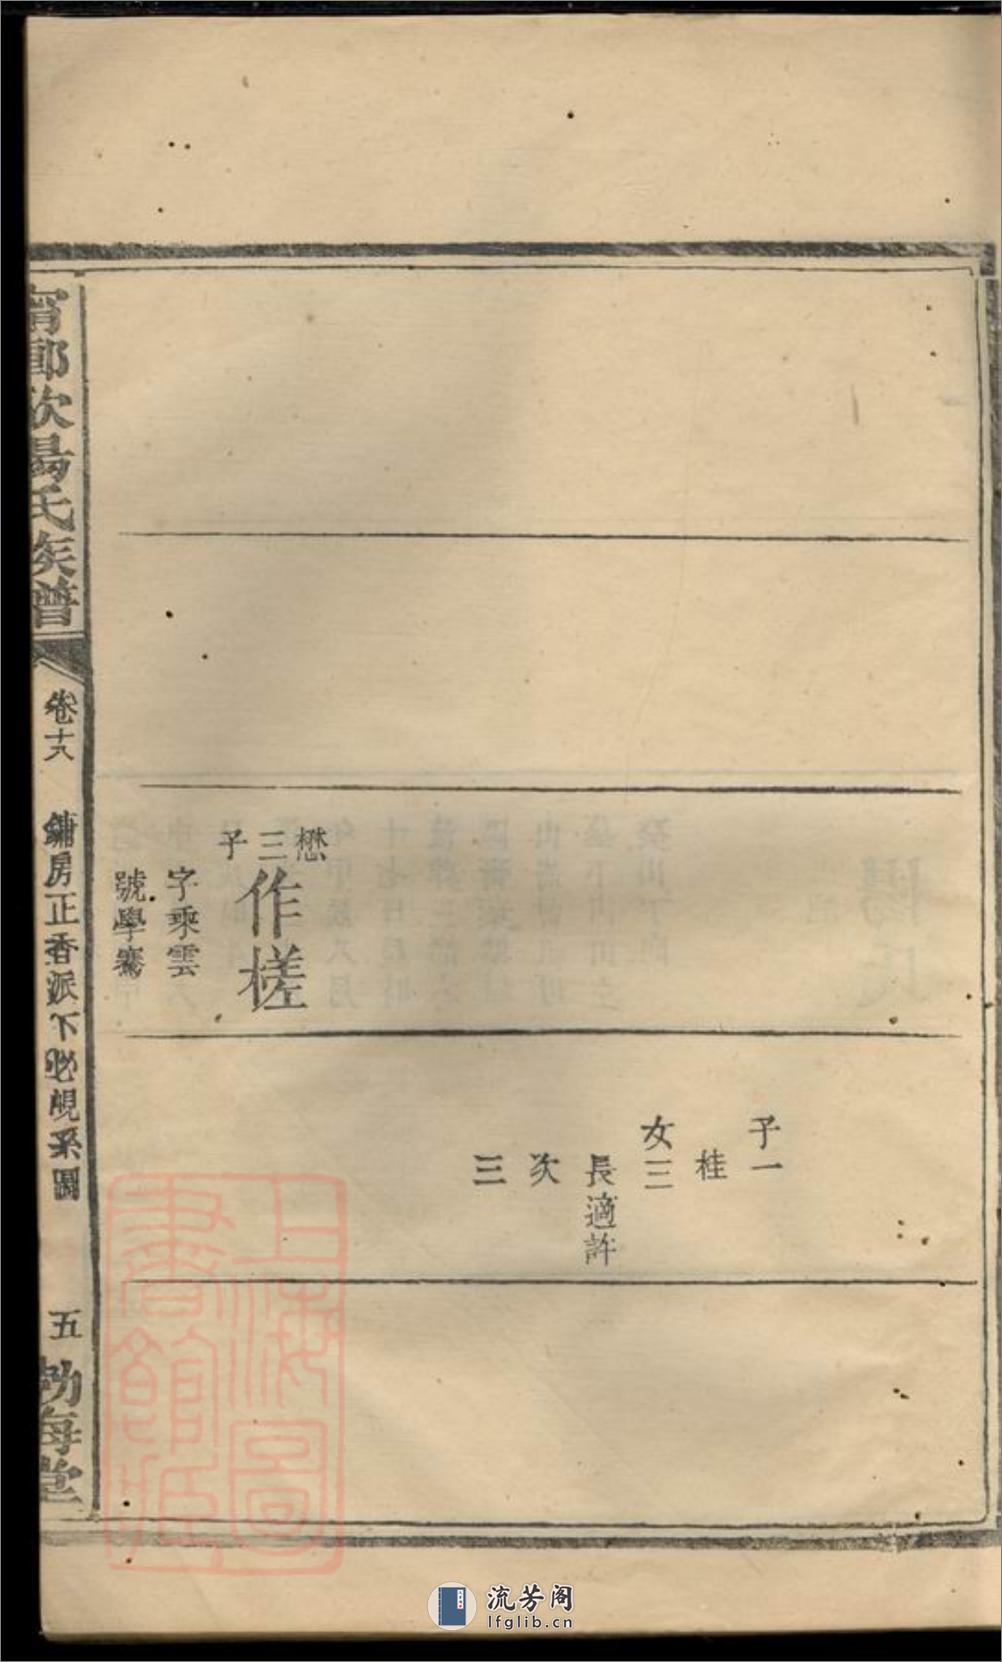 子一
桂
女三
長適許
次
三
懋三子
作槎
字乘雲
號學騫
氏族譜
卷十八
鏞房正香派下必覞系圖
五
勃海堂
上海圖
書館藏
流芳阁
lfglib.cn